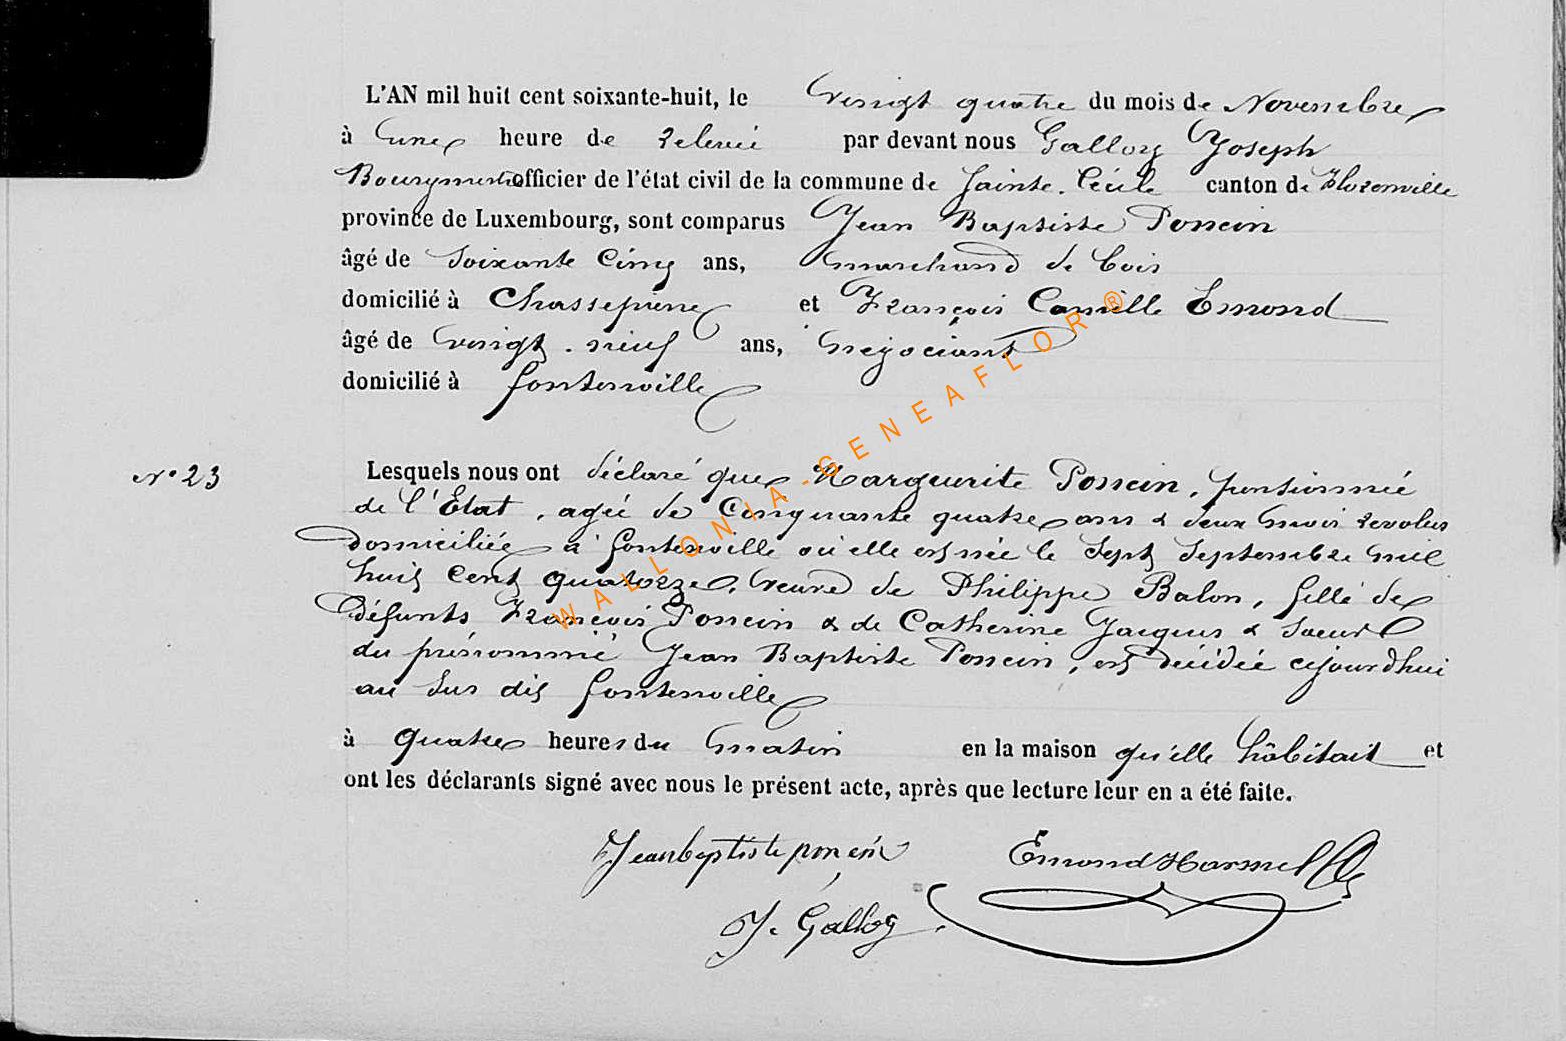 L'AN mil huit cent soixante-huit, le vingt quatre du mois de Novembre
à une heure de relevée par devant nous Galloy Joseph
Bourgmestre officier de l'état civil de la commune de Sainte-Cécile canton de Florenville
province de Luxembourg, sont comparus Jean Baptiste Poncin
âgé de soixante cinq ans, marchand de bois
domicilié à Chassepierre et François Camille Emond
âgé de vingt-neuf ans, négociant
domicilié à fontenoille
N° 23
Lesquels nous ont déclaré que Marguerite Poncin, pensionnée
de l'Etat, agée de Cinquante quatre ans & deux mois révolus
domiciliée à fontenoille où elle est née le Sept Septembre mil
huit Cent quatorze, veuve de Philippe Balon, fille de
Défunts François Poncin & de Catherine Jacques & Soeur
du prénommé Jean Baptiste Poncin, est décédée cejourd'hui
au sus dit fontenoille
à quatre heures du matin en la maison qu'elle hâbitait et
ont les déclarants signé avec nous le présent acte, après que lecture leur en a été faite.
Jeanbaptiste poncin Emond Harmel
J. Galloy
WALLONIA-GENEAFLOR ®